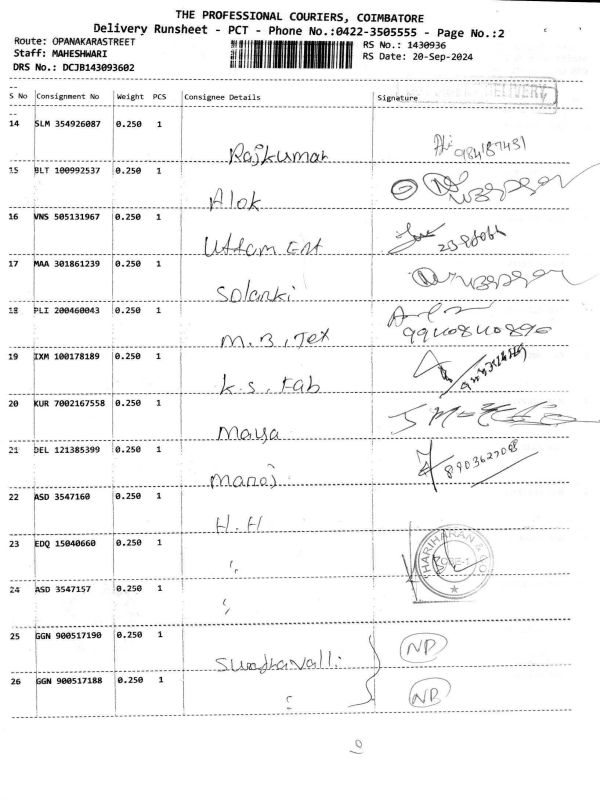 THE PROFESSIONAL COURIERS, COIMBATORE
Delivery Runsheet - PCT - Phone No.:0422-3505555 - Page No.:2
Route: OPANAKARASTREET RS No.: 1430936
Staff: MAHESHWARI RS Date: 20-Sep-2024
DRS No.: DCJB143093602
S No Consignment No Weight PCS Consignee Details Signature
DELIVERY
14 SLM 354926087 0.250 1
Rajkumar
15 BLT 100992537 0.250 1
Alok
16 VNS 505131967 0.250 1
Uttam Ent
17 MAA 301861239 0.250 1
Solanki
18 PLI 200460043 0.250 1
M.B, Tex
19 IXM 100178189 0.250 1
K.S. Fab
20 KUR 7002167558 0.250 1
Maya
21 DEL 121385399 0.250 1
Manoj 8903627008
22 ASD 3547160 0.250 1
H.H
23 EDQ 15040660 0.250 1
"
HARIHARAN & CO
24 ASD 3547157 0.250 1
"
25 GGN 900517190 0.250 1
ND
26 GGN 900517188 0.250 1
"
ND